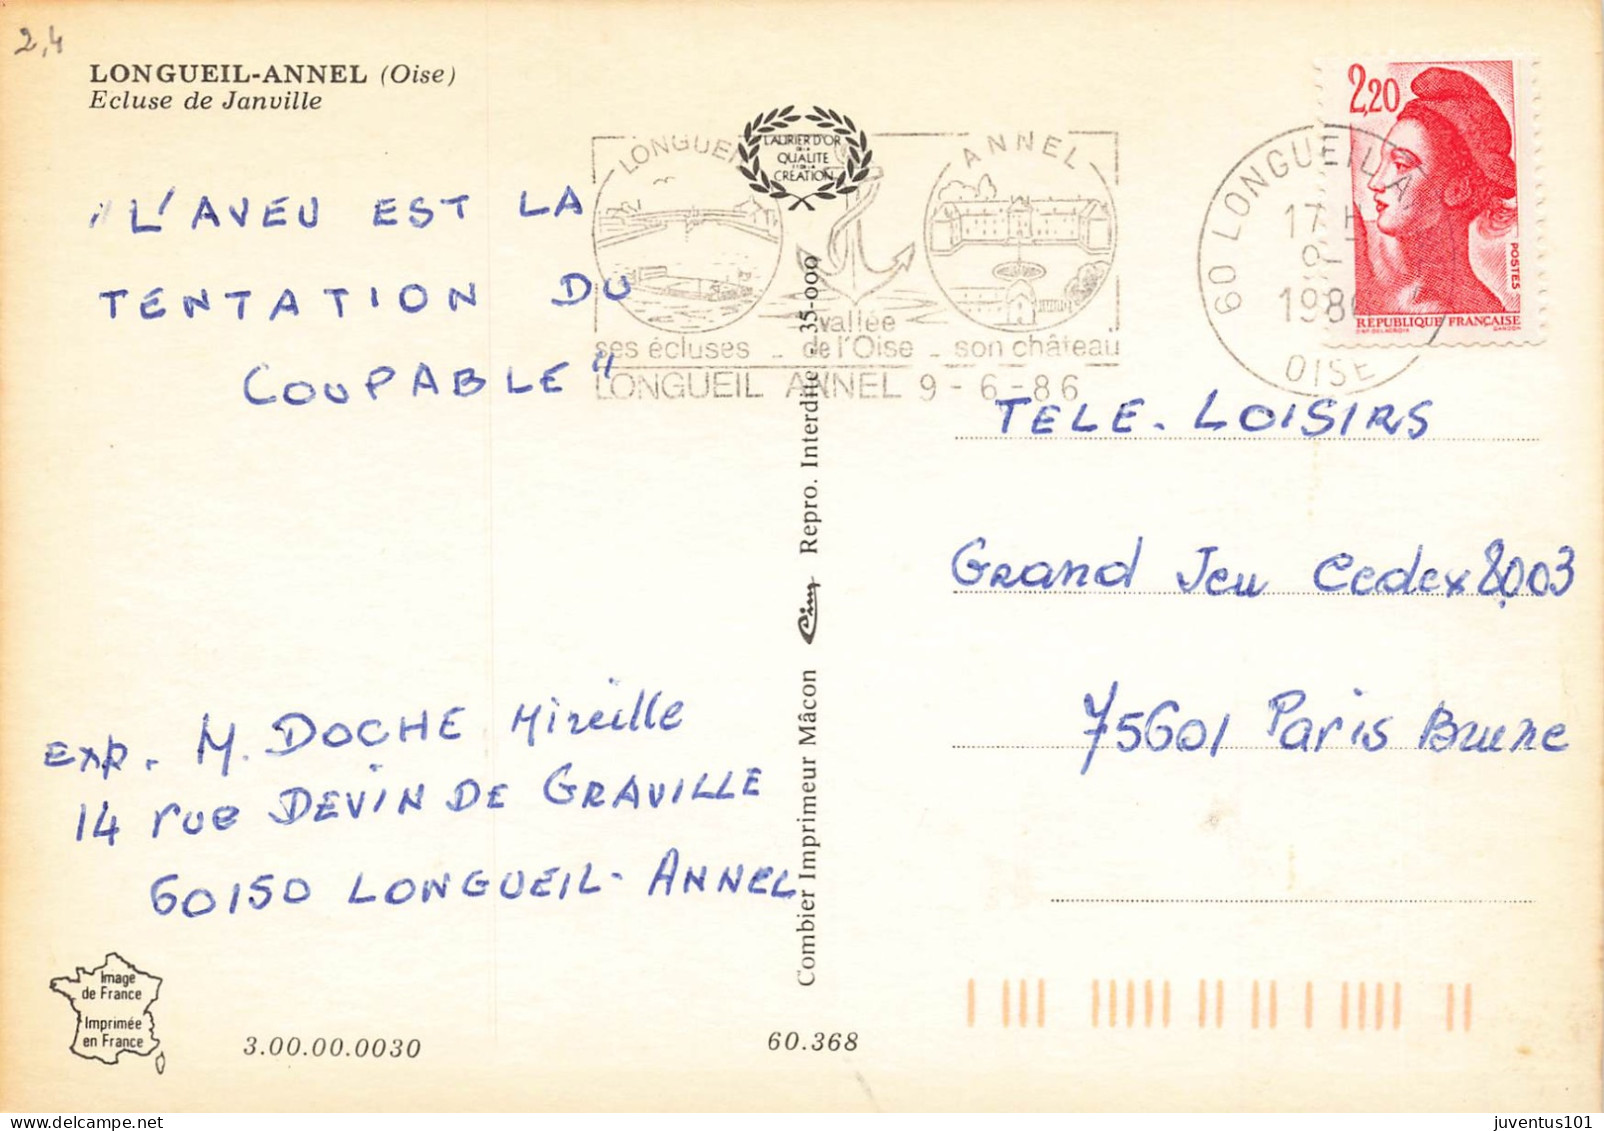 2,4
LONGUEIL-ANNEL (Oise)
Ecluse de Janville
"L'AVEU EST LA
TENTATION DU
COUPABLE"
LONGUEIL ANNEL
LAURIER D'OR
DE LA
QUALITE
ET DE LA
CREATION
vallée
ses écluses - de l'Oise - son château
LONGUEIL ANNEL 9 - 6 - 86
60 LONGUEIL A
17 H
9
198
OISE
2,20
POSTES
REPUBLIQUE FRANÇAISE
D'AP. DELACROIX GANDON
TELE. LOISIRS
Grand Jeu Cedex 8003
75601 Paris Brune
exp. M. DOCHE Mireille
14 rue DEVIN DE GRAVILLE
60150 LONGUEIL-ANNEL
Combier Imprimeur Mâcon Cim Repro. Interdite 35-000
Image
de France
Imprimée
en France
3.00.00.0030
60.368
juventus101